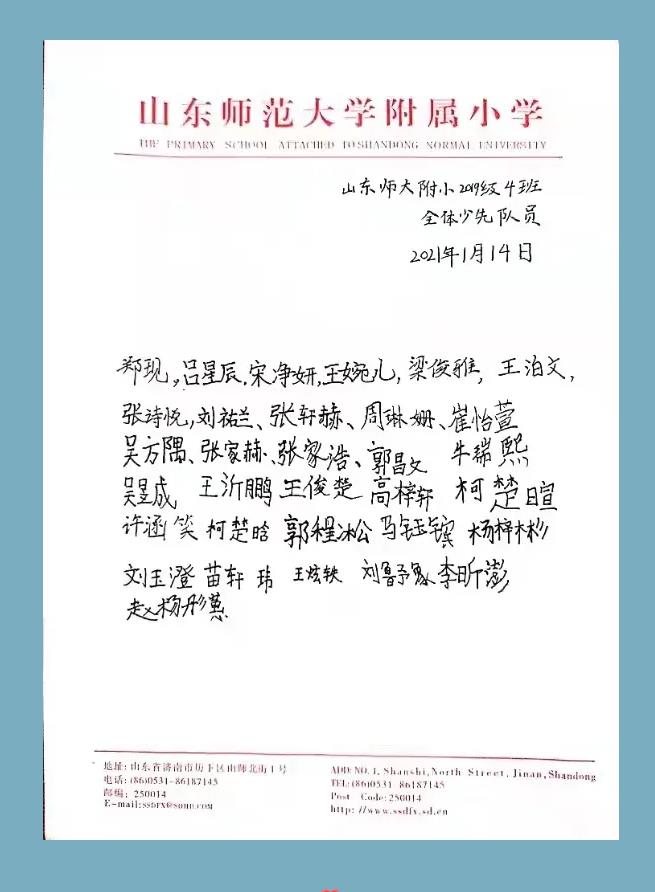 山东师范大学附属小学
THE PRIMARY SCHOOL ATTACHED TO SHANDONG NORMAL UNIVERSITY
山东师大附小2019级4班
全体少先队员
2021年1月14日
郑现,吕星辰,宋净妍,王婉儿,梁俊雅,王泊文,
张诗悦,刘祐兰、张轩赫、周琳姗、崔怡萱
吴方隅、张家赫、张家浩、郭昌文 牛瑞熙
吴昱成 王沂鹏 王俊楚 高梓轩 柯楚暄
许涵笑 柯楚晗 郭程凇 马钰镔 杨梓彬
刘玉澄 苗轩玮 王炫轶 刘鲁予 李昕澎
赵杨彤
地址:山东省济南市历下区山师北街1号
电话:(86)0531-86187145
邮编:250014
E-mail:ssdfx@sohu.com
ADD:NO.1,Shanshi,North Street,Jinan,Shandong
TEL:(86)0531 86187145
Post Code:250014
http://www.ssdfx.sd.cn